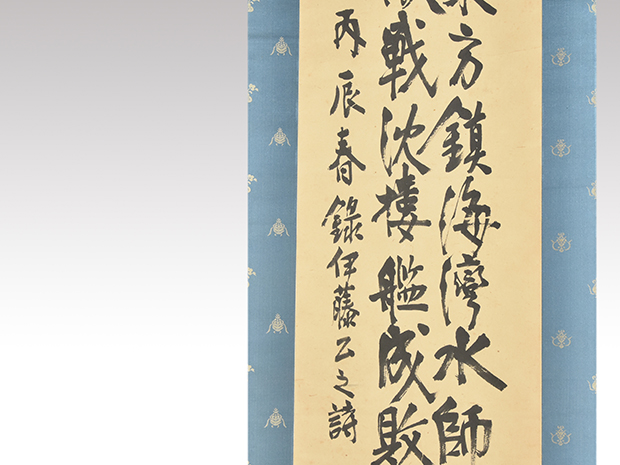 方鎮海灣水師
戰沈樓艦成敗
丙辰春録伊藤公之詩